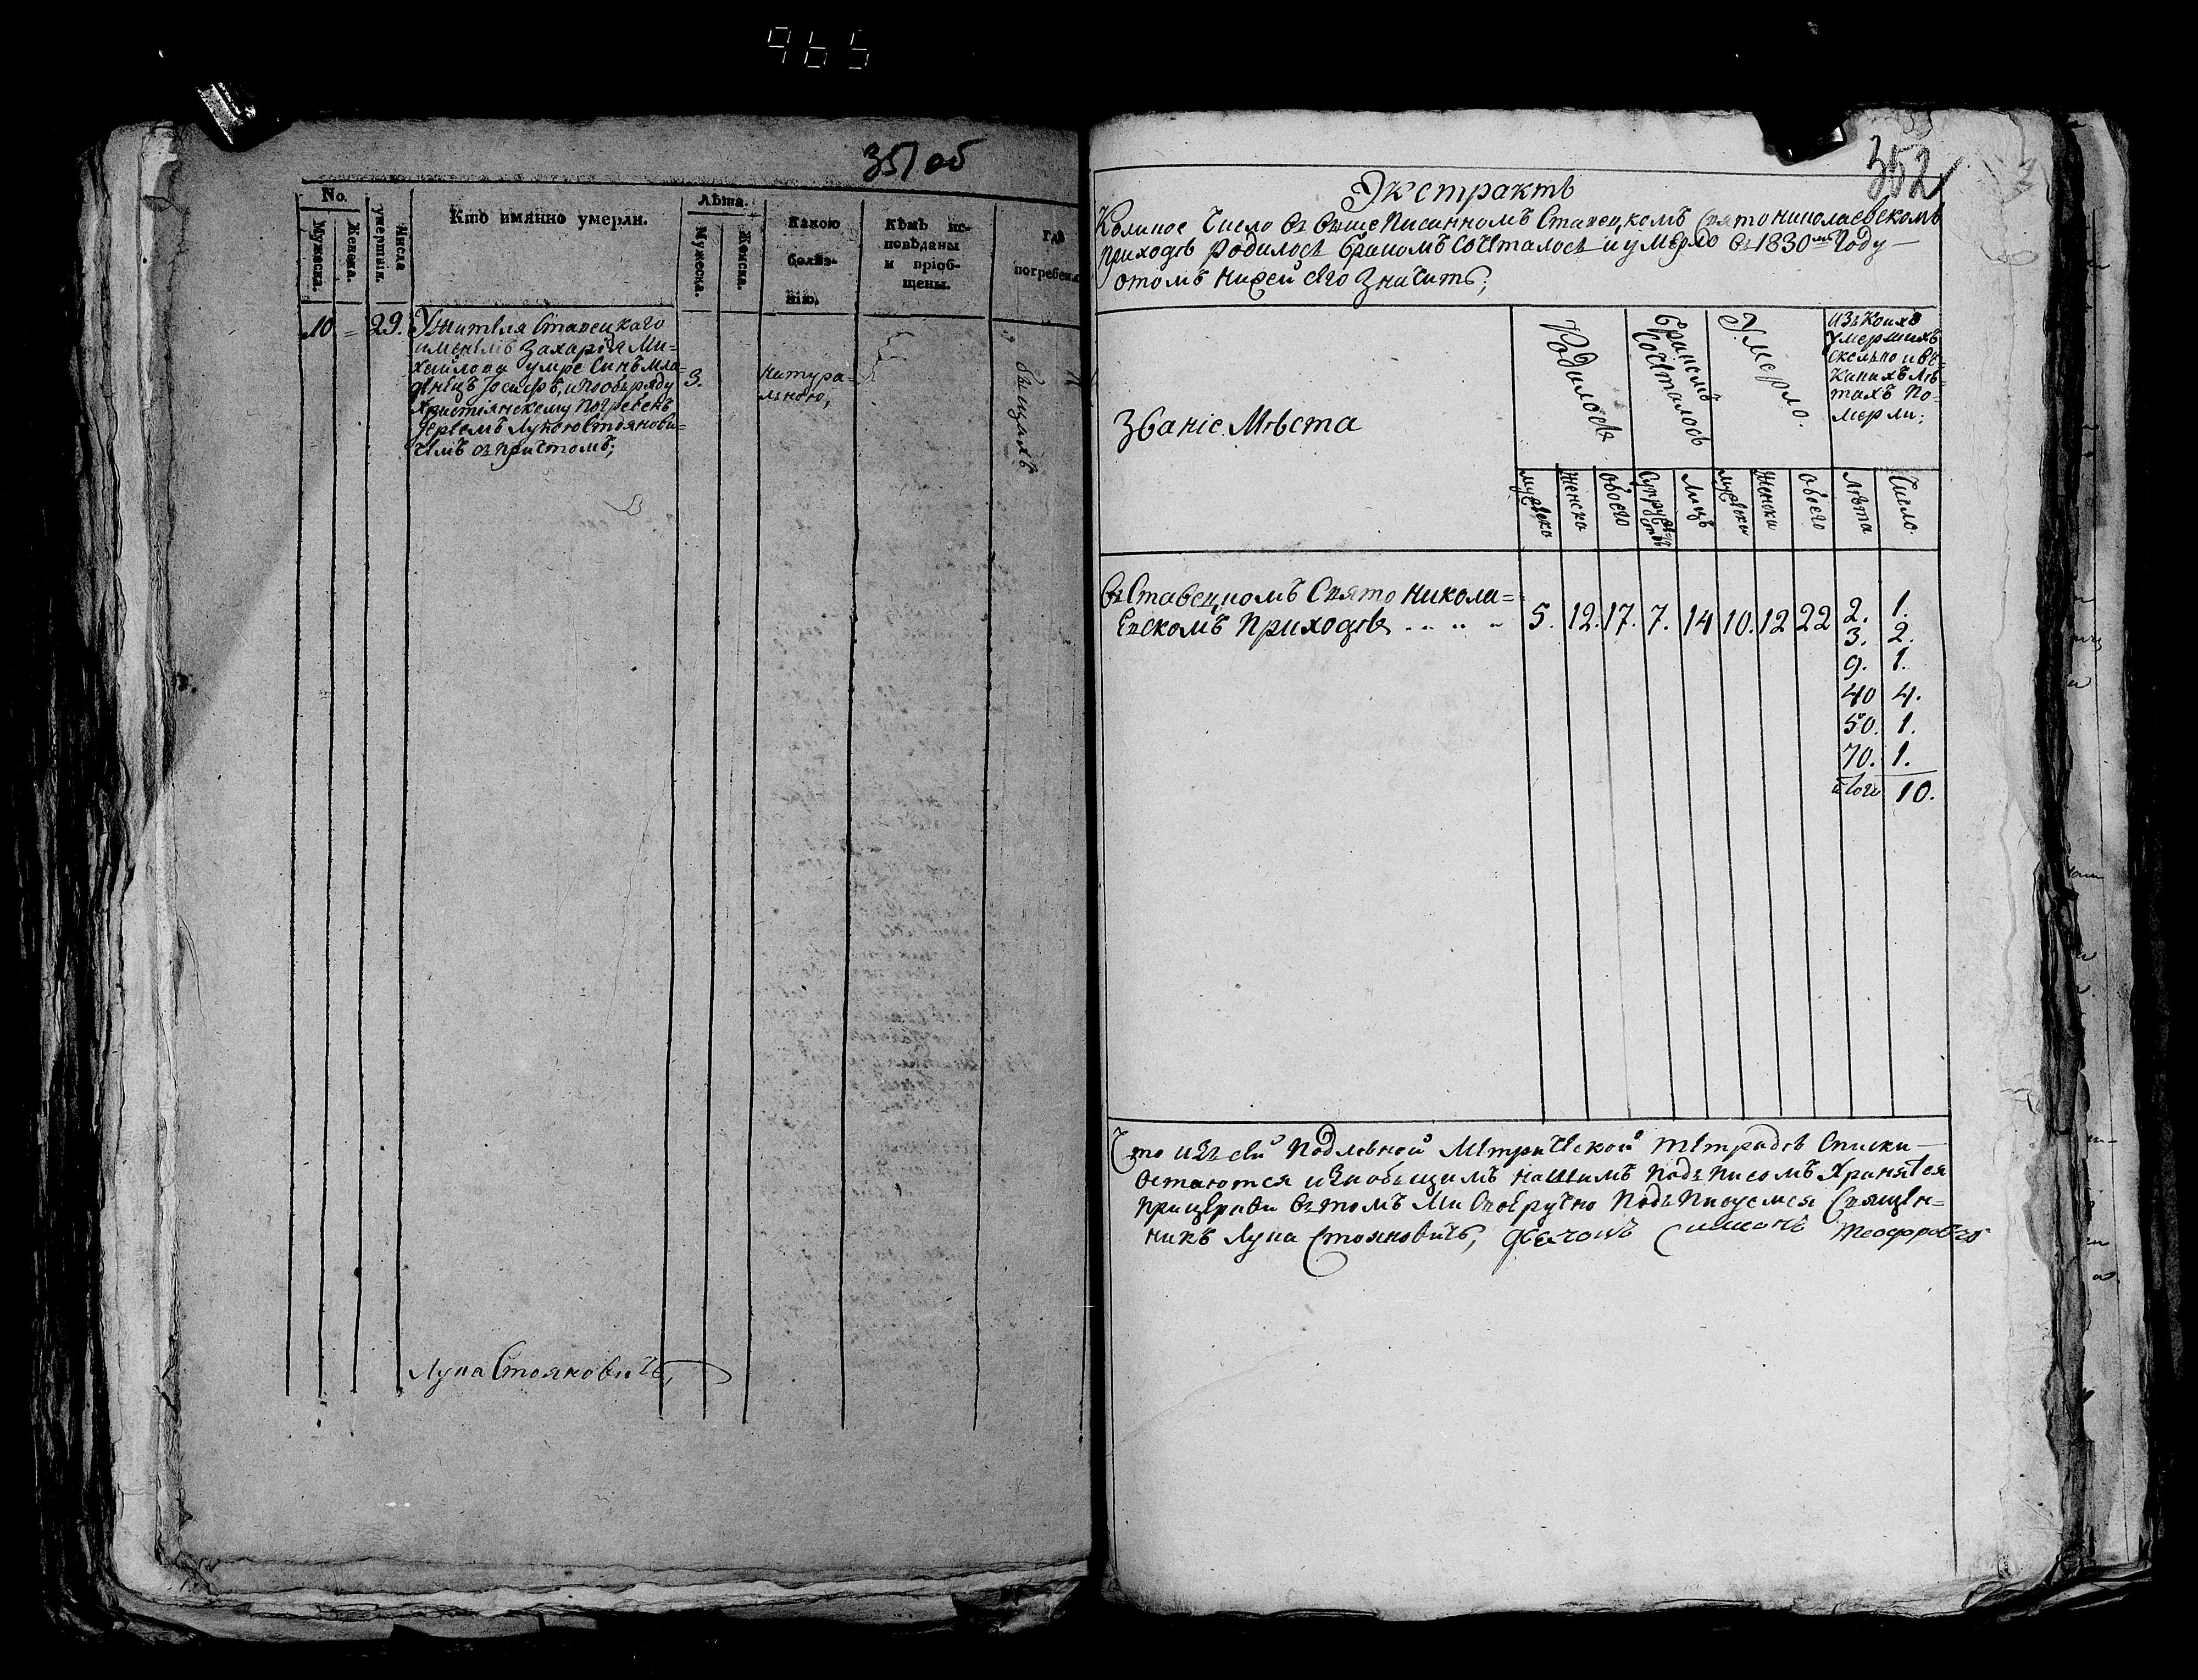 965
351 об
No.
Мужеска.
Женска.
Числа
умершихъ.
Кто имянно умерли.
Лѣта.
Мужеска.
Женска.
Какою
болѣз-
нію.
Кѣмъ ис-
повѣданы
и пріоб-
щены.
Гдѣ
погребены
10.
29.
Жителя Ставецкаго
Захарія Ми-
хайлова умре Синъ мла-
денецъ Іосифъ, и по обряду
Христіянскому погребенъ
Іереемъ Лукою Стоянови-
чемъ съ причтомъ;
3.
натура-
льною,
Лука Стояновичъ,
352
Экстрактъ
Коликое Число Въ Выше Писанномъ Ставецкомъ Святониколаевскомъ
приходѣ родилось бракомъ сочеталось и умерло въ 1830мъ Году
отомъ нижей сего Значитъ;
Званіе Мѣста
Родилось
бракомъ
сочеталось
Умерло.
изъ Коихъ
Умершихъ
сколько и въ
Какихъ Лѣ-
тахъ По-
мерли;
мужеска
женска
обоего
Супружествъ
Лицъ
мужеска
женска
обоего
Лѣта
Число.
въ Ставецкомъ Свято Никола=
Евскомъ Приходѣ
5. 12. 17. 7. 14 10. 12 22 2. 1.
3. 2.
9. 1.
40 4.
50. 1.
70. 1.
итого 10.
Что изъ сей Подлѣнной Метрической тетрадѣ Списки
Остаются и за общимъ нашимъ подъ писомъ Хранятся
при церкви Въ томъ Ми Своеручно Подъ Писуемся Священ=
никъ Лука Стояновичъ, дьячокъ Симионъ Теодоровъ